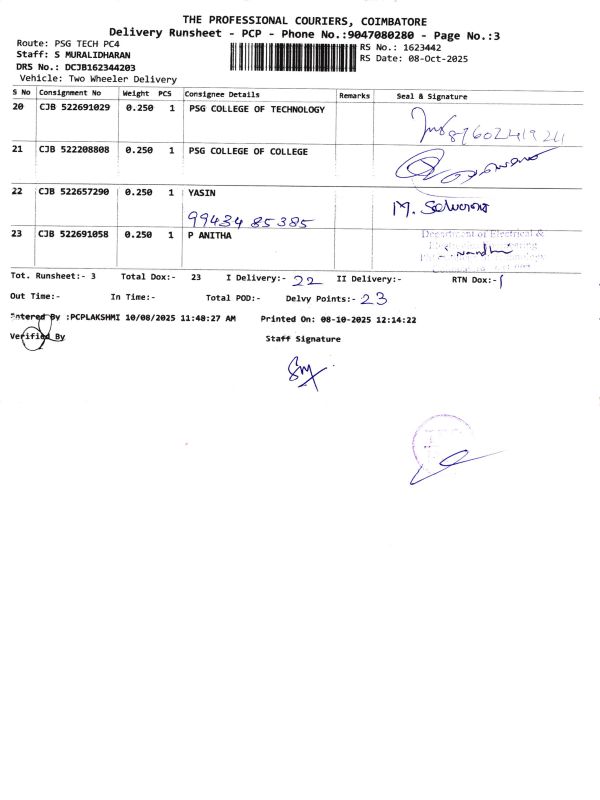 THE PROFESSIONAL COURIERS, COIMBATORE
Delivery Runsheet - PCP - Phone No.:9047080280 - Page No.:3
Route: PSG TECH PC4
RS No.: 1623442
Staff: S MURALIDHARAN
RS Date: 08-Oct-2025
DRS No.: DCJB162344203
Vehicle: Two Wheeler Delivery
S No Consignment No Weight PCS Consignee Details Remarks Seal & Signature
20 CJB 522691029 0.250 1 PSG COLLEGE OF TECHNOLOGY
21 CJB 522208808 0.250 1 PSG COLLEGE OF COLLEGE
22 CJB 522657290 0.250 1 YASIN
99434 85385
23 CJB 522691058 0.250 1 P ANITHA
Department of Electrical &
Tot. Runsheet:- 3 Total Dox:- 23 I Delivery:- 22 II Delivery:- RTN Dox:- 1
Out Time:- In Time:- Total POD:- Delvy Points:- 23
Entered By :PCPLAKSHMI 10/08/2025 11:48:27 AM Printed On: 08-10-2025 12:14:22
Verified By Staff Signature